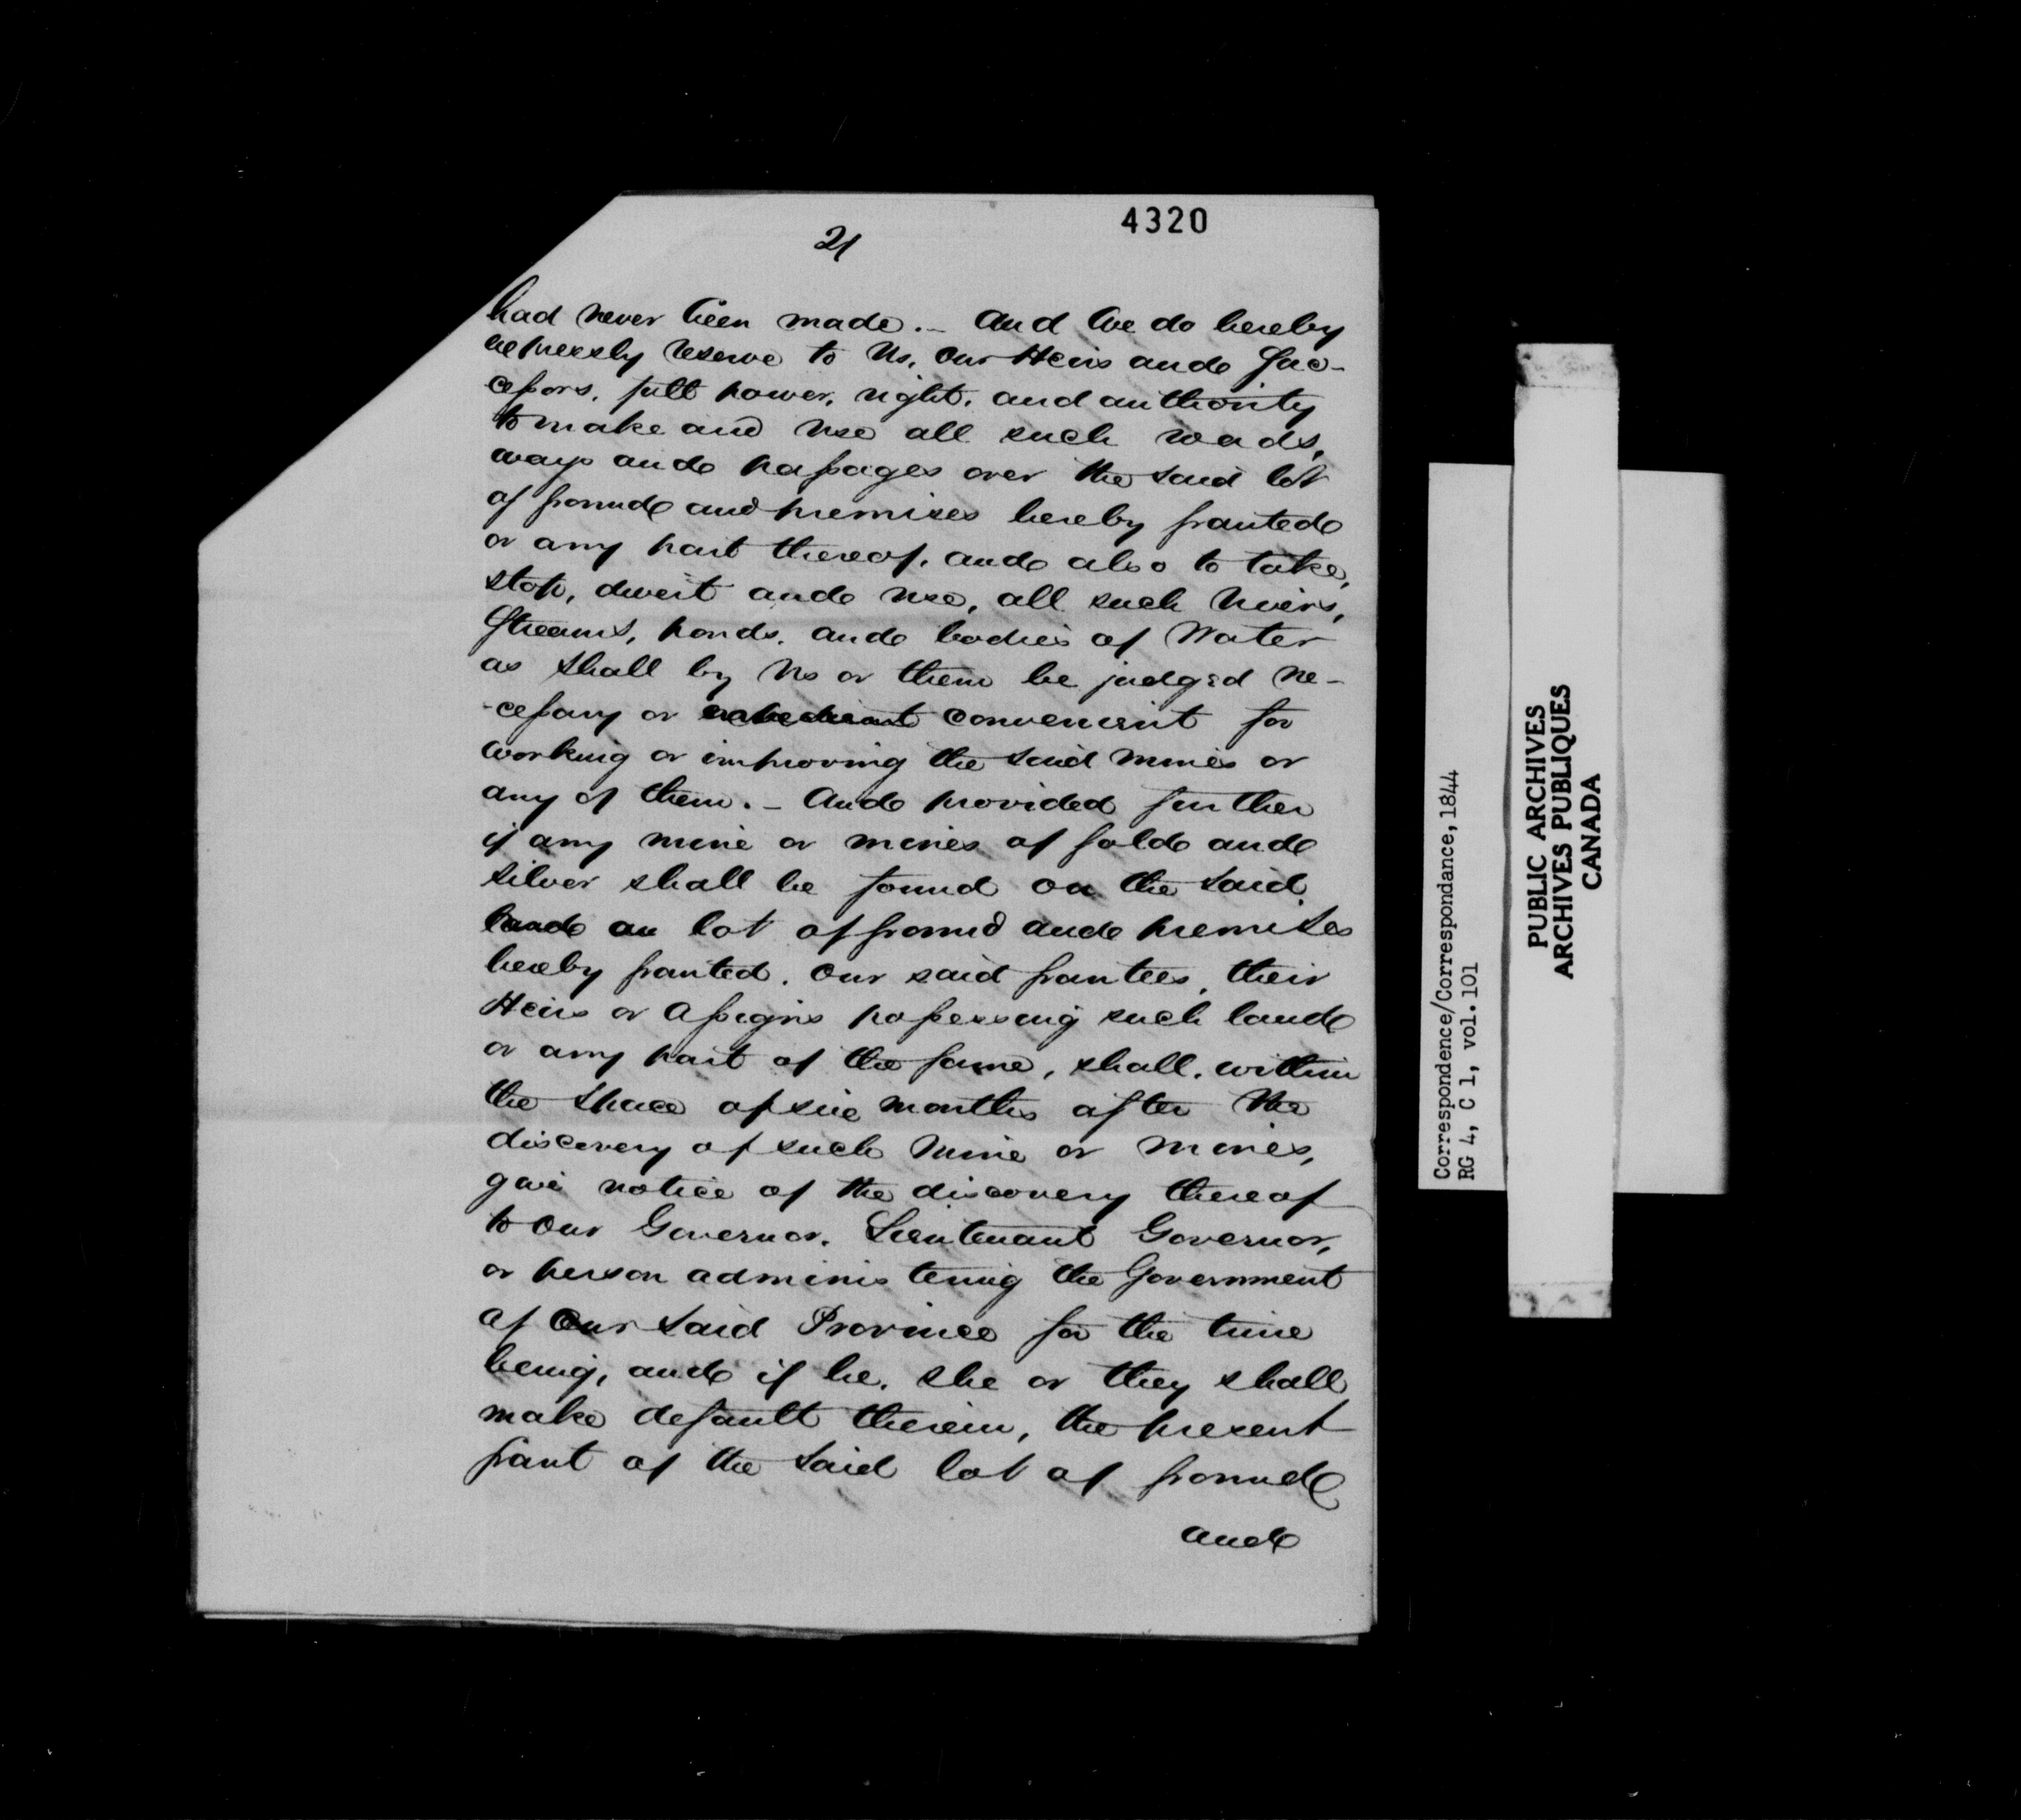 4320
21
had never been made. - And We do hereby
expressly reserve to Us, Our Heirs and Suc-
cessors, full power, right, and authority
to make and use all such roads,
ways and passages over the said lot
of ground and premises hereby granted
or any part thereof, and also to take,
stop, divert and use, all such rivers,
Streams, ponds, and bodies of Water
as shall by Us or them be judged ne-
-cessary or convenient for
working or improving the said mines or
any of them. - And provided further
if any mine or mines of gold and
silver shall be found on the said
lot of ground and premises
hereby granted, Our said grantees, their
Heirs or Assigns possessing such land
or any part of the same, shall, within
the space of six months after the
discovery of such Mine or Mines,
give notice of the discovery thereof
to Our Governor, Lieutenant Governor,
or person administering the Government
of Our said Province for the time
being, and if he, she or they shall
make default therein, the present
grant of the said lot of ground
and
Correspondence/Correspondance, 1844
RG 4, C 1, vol. 101
PUBLIC ARCHIVES
ARCHIVES PUBLIQUES
CANADA